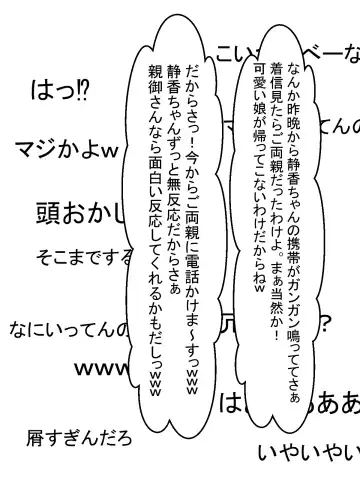 なんか昨晩から静香ちゃんの携帯がガンガン鳴っててさぁ
着信見たらご両親だったわけよ。まぁ当然か！
可愛い娘が帰ってこないわけだからねw
だからさっ！今からご両親に電話かけま～すっwww
静香ちゃんずっと無反応だからさぁ
親御さんなら面白い反応してくれるかもだしっwww
はっ!?
マジかよw
頭おかし
そこまでする
なにいってんの
www
屑すぎんだろ
こい
べーな
てんの
?
は
ああ
いやいやい